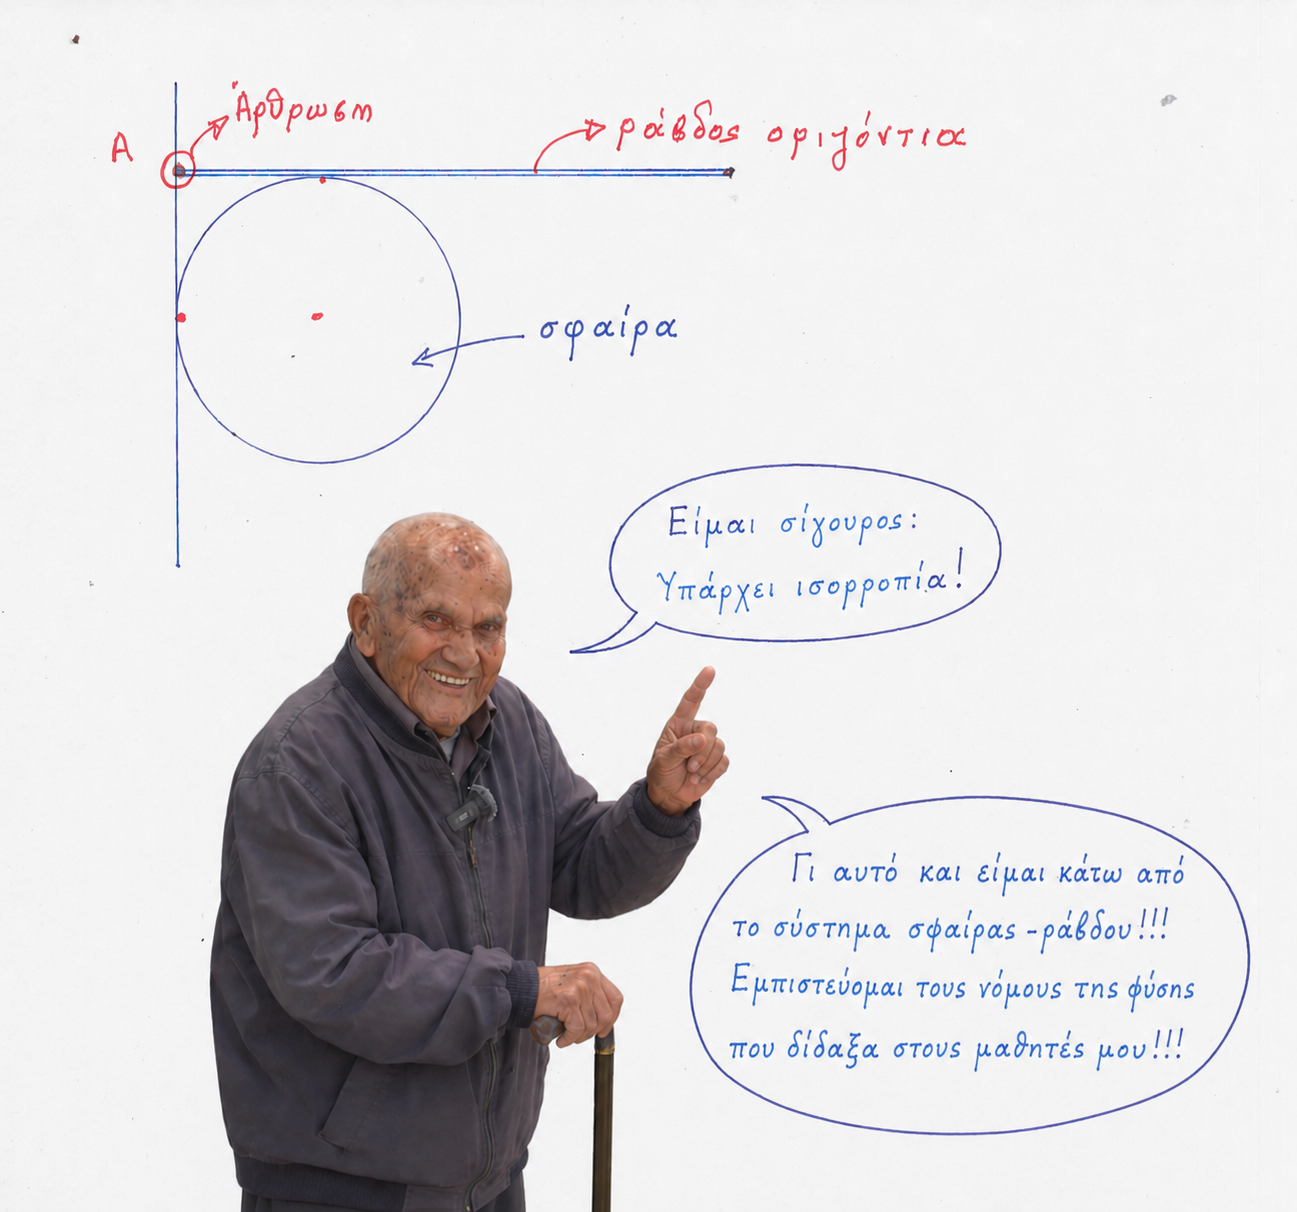 Άρθρωση
Α
ράβδος οριζόντια
σφαίρα
Είμαι σίγουρος:
Υπάρχει ισορροπία!
Γι αυτό και είμαι κάτω από
το σύστημα σφαίρας - ράβδου!!!
Εμπιστεύομαι τους νόμους της φύσης
που δίδαξα στους μαθητές μου!!!